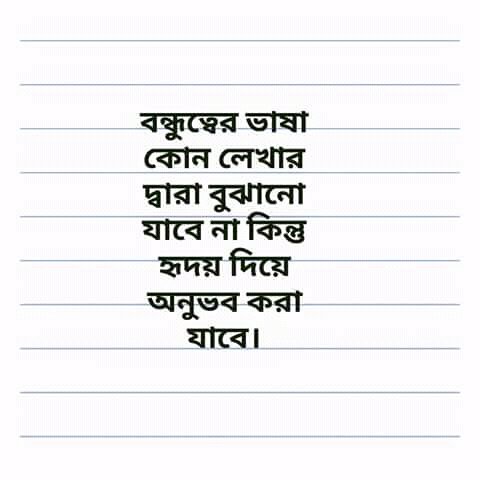 বন্ধুত্বের ভাষা
কোন লেখার
দ্বারা বুঝানো
যাবে না কিন্তু
হৃদয় দিয়ে
অনুভব করা
যাবে।